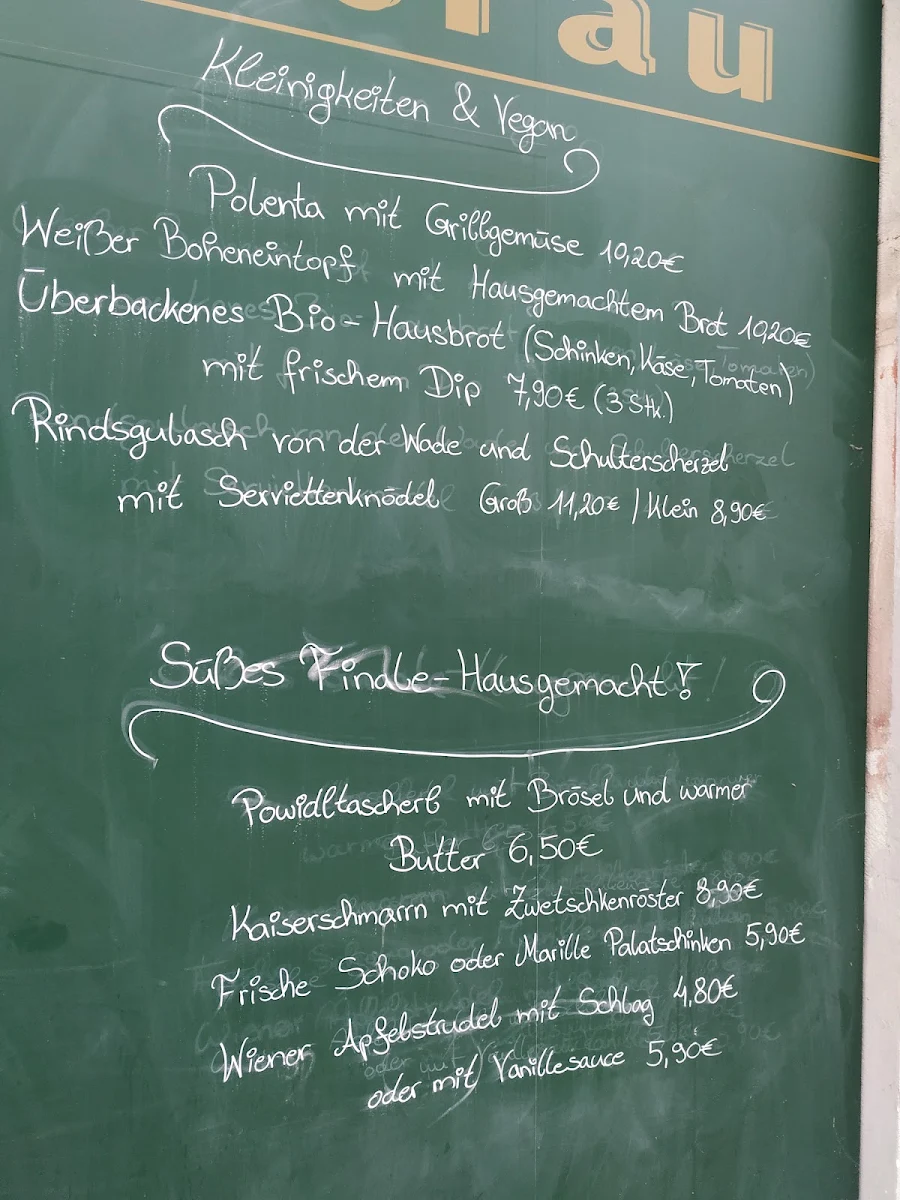 räu
Kleinigkeiten & Vegan
Polenta mit Grillgemüse 10,20€
Weißer Bohneneintopf mit Hausgemachtem Brot 10,20€
Überbackenes Bio-Hausbrot (Schinken, Käse, Tomaten)
mit frischem Dip 7,90€ (3 Stk.)
Rindsgulasch von der Wade und Schulterscherzel
mit Serviettenknödel Groß 11,20€ | Klein 8,90€
Süßes Finale - Hausgemacht!
Powidltascherl mit Brösel und warmer
Butter 6,50€
Kaiserschmarrn mit Zwetschkenröster 8,90€
Frische Schoko oder Marille Palatschinken 5,90€
Wiener Apfelstrudel mit Schlag 4,80€
oder mit Vanillesauce 5,90€